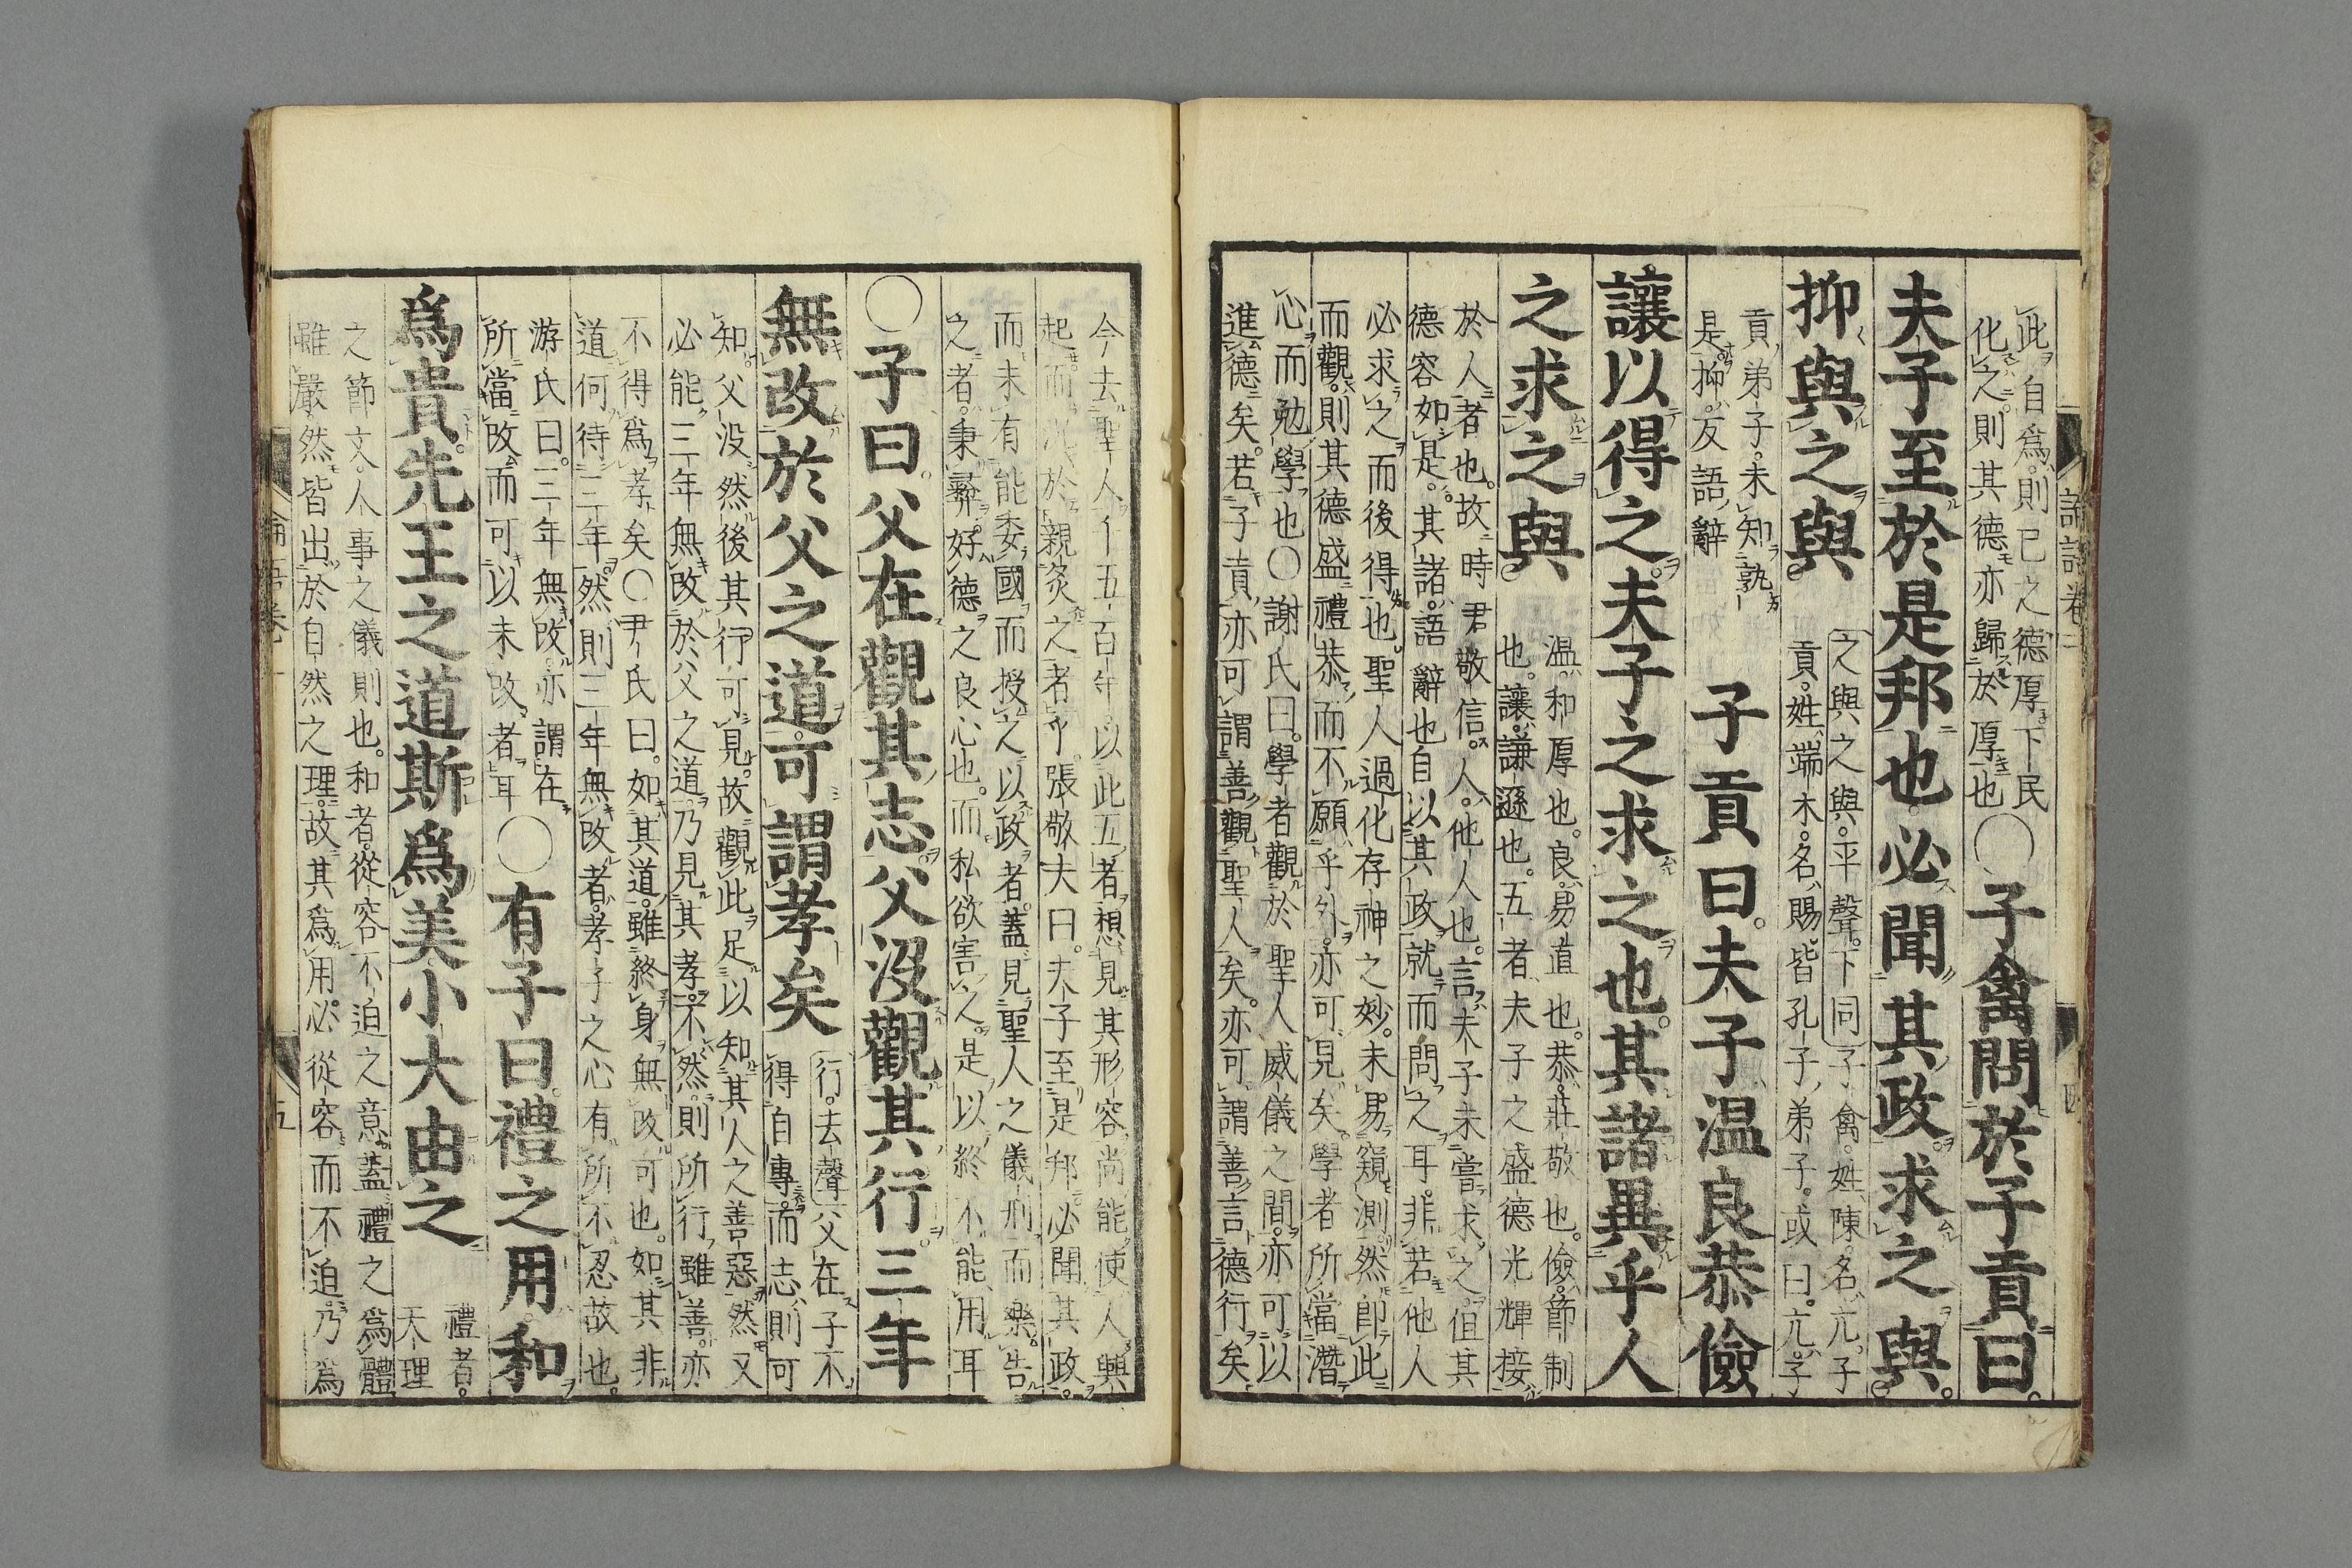 論語卷一 四
此自爲則已之德厚下民
化之則其德亦歸於厚也
〇子禽問於子貢曰。
夫子至於是邦也必聞其政求之與。
抑與之與。
之與之與。平聲。下同子禽。姓陳。名亢。子
貢。姓端木。名賜。皆孔子弟子。或曰。亢。子
貢弟子。未知孰
是。抑反語辭
子貢曰。夫子温良恭儉
讓以得之。夫子之求之也。其諸異乎人
之求之與。
温和厚也。良易直也。恭莊敬也。儉節制
也。讓謙遜也。五者夫子之盛德光輝接
於人者也。故時君敬信。人。他人也。言夫子未嘗求之。但其
德容如是。其諸。語辭也自以其政就而問之耳。非若他人
必求之而後得也。聖人過化存神之妙。未易窺測。然即此
而觀。則其德盛禮恭而不願乎外。亦可見矣。學者所當潛
心而勉學也〇謝氏曰。學者觀於聖人威儀之間。亦可以
進德矣。若子貢亦可謂善觀聖人矣。亦可謂善言德行矣
今去聖人千五百年以此五者想見其形容尚能使人興
起。而況於親炙之者乎。張敬夫曰。夫子至是邦必聞其政。
而未有能委國而授之以政者。蓋見聖人之儀刑而樂告
之者。秉彝好德之良心也。而私欲害之。是以終不能用耳
〇子曰。父在觀其志父沒觀其行。三年
無改於父之道。可謂孝矣
行。去聲父在子不
得自專。而志則可
知。父没然後其行可見。故觀此足以知其人之善惡。然又
必能三年無改於父之道。乃見其孝。不然則所行雖善。亦
不得爲孝矣〇尹氏曰。如其道。雖終身無改可也。如其非
道何待三年。然則三年無改者。孝子之心有所不忍故也。
游氏曰。三年無改。亦謂在
所當改而可以未改者耳
〇有子曰。禮之用。和
爲貴。先王之道。斯爲美小大由之
禮者。
天理
之節文。人事之儀則也。和者。從容不迫之意。蓋禮之爲體
雖嚴然皆出於自然之理。故其爲用。必從容而不迫。乃爲
論語卷一 五